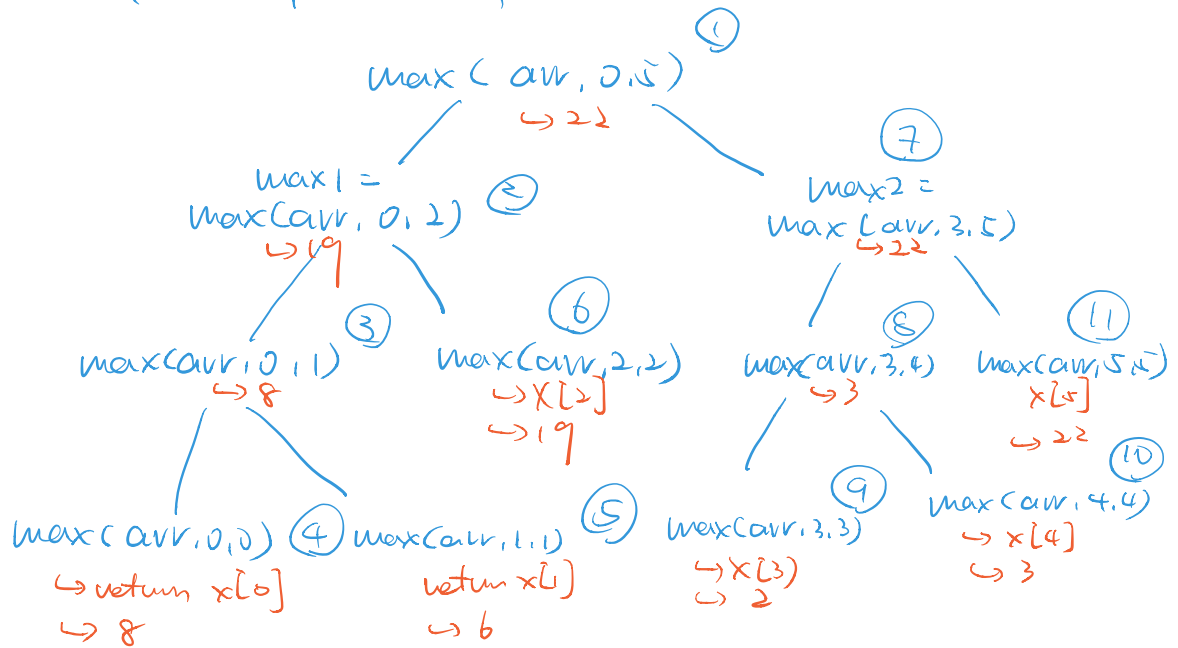 ①
max ( arr, 0,5)
↪ 22
max1 =
②
max(arr, 0,2)
↪ 19
⑦
max2 =
max (arr,3,5)
↪ 22
③
max(arr,0,1)
↪ 8
⑥
max(arr,2,2)
↪ X[2]
↪ 19
⑧
max(arr,3,4)
↪ 3
⑪
max(arr,5,5)
x[5]
↪ 22
max(arr,0,0)
④
↪ return x[0]
↪ 8
max(arr,1,1)
⑤
return x[1]
↪ 6
⑨
max(arr,3,3)
↪ X[3)
↪ 2
⑩
max(arr,4,4)
↪ x[4]
↪ 3